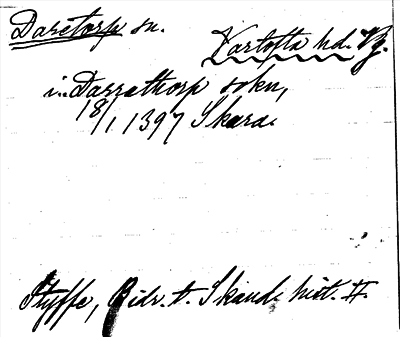 Daretorp sn.
Vartofta hd. Vg.
i Darrathorp sokn,
18/1 1397 Skara.
Styffe, Bidr. t. Skand. hist. II.